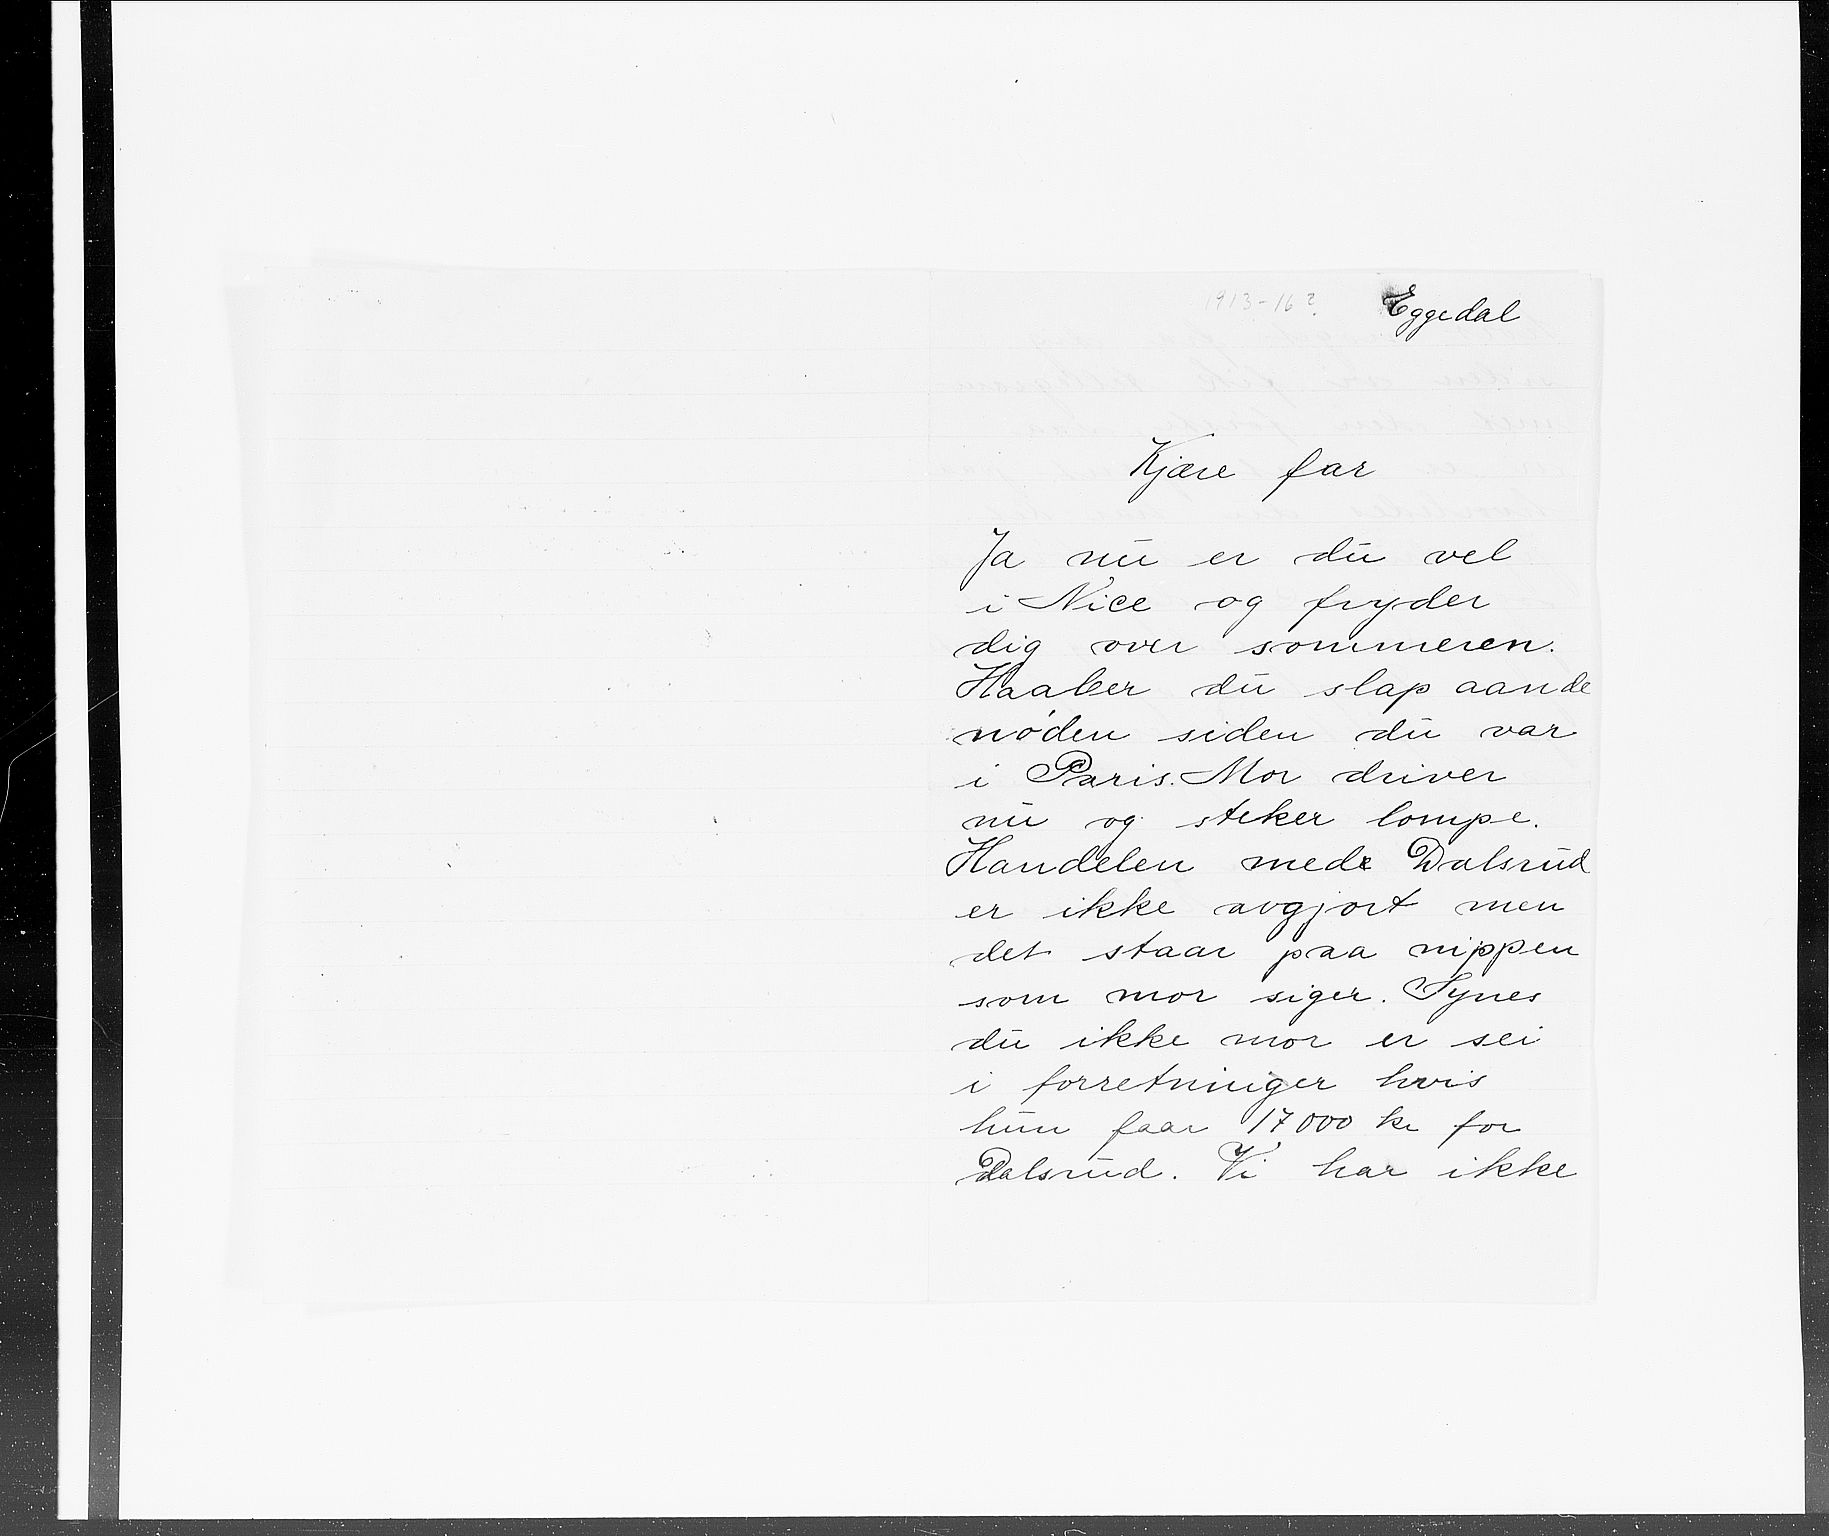 1913-16?
Eggedal
Kjære far
Ja nu er du vel
i Nice og fryder
dig over sommeren.
Haaber du slap aande
nøden siden du var
i Paris. Mor driver
nu og steker lompe.
Handelen med Dalsrud
er ikke avgjort men
det staar paa nippen
som mor siger. Synes
du ikke mor er sei
i forretninger hvis
hun faar 17000 kr for
Dalsrud. Vi har ikke